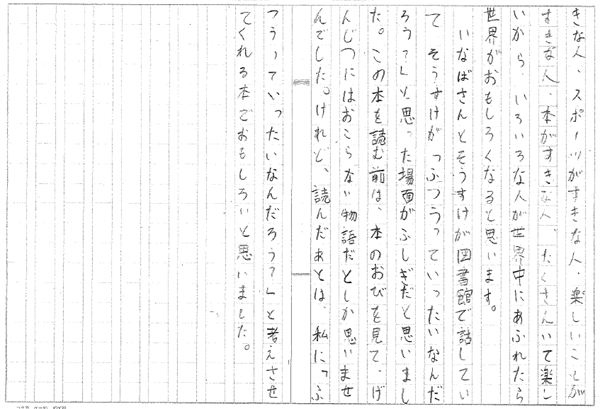 きな人、スポーツがすきな人、楽しいことが
すきな人、本がすきな人、たくさんいて楽し
いから、いろいろな人が世界中にあふれたら
世界がおもしろくなると思います。
いなばさんとそうすけが図書館で話してい
て そうすけが「ふつうっていったいなんだ
ろう？」と思った場面がふしぎだと思いまし
た。この本を読む前は、本のおびを見て、げ
んじつにはおこらない物語だとしか思いませ
んでした。けれど、読んだあとは、私に「ふ
つうっていったいなんだろう？」と考えさせ
てくれる本でおもしろいと思いました。